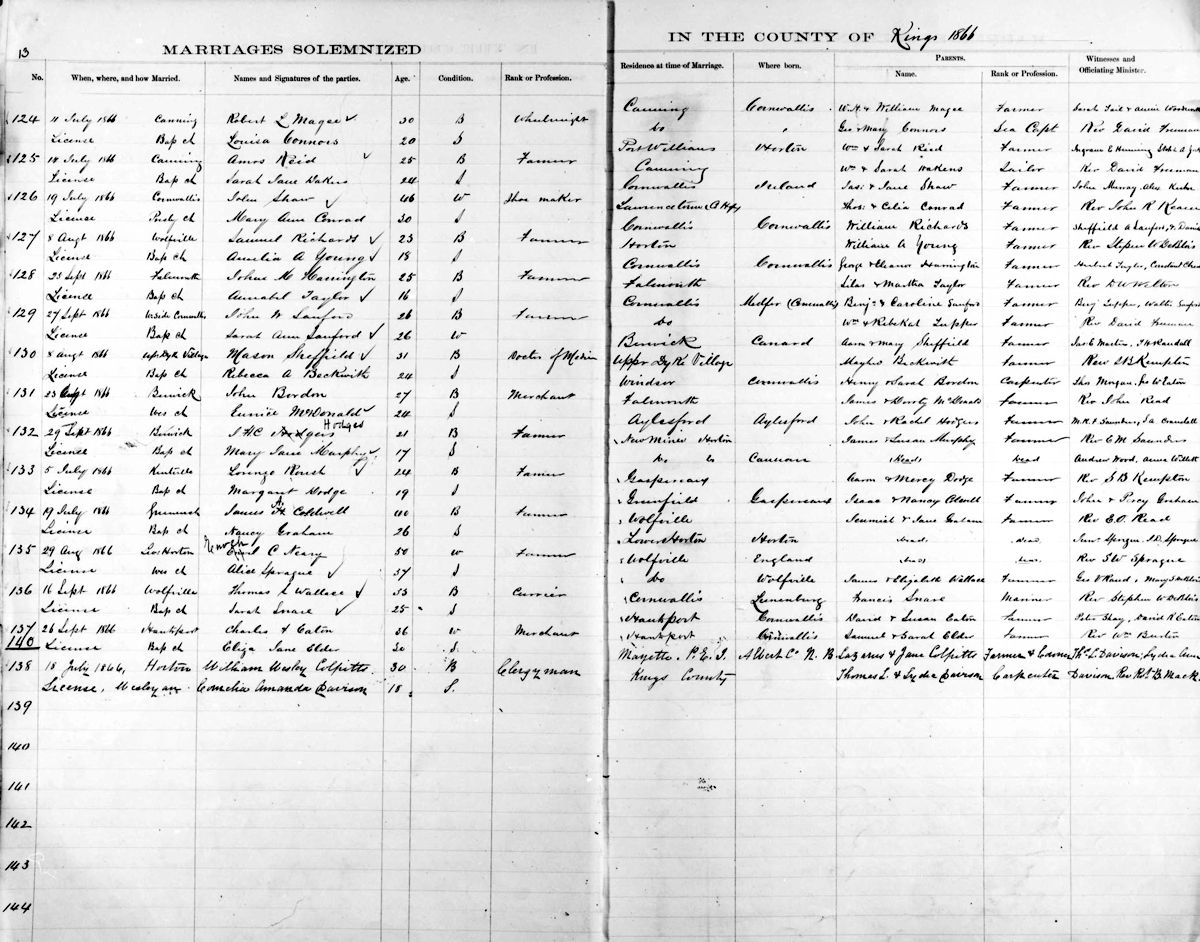 13
MARRIAGES SOLEMNIZED
IN THE COUNTY OF Kings 1866
No. When, where, and how Married. Names and Signatures of the parties. Age. Condition. Rank or Profession.
Residence at time of Marriage. Where born. PARENTS. Witnesses and
Name. Rank or Profession. Officiating Minister.
124 11 July 1866 Canning Robert L Magee 30 B Wheelwright Canning Cornwallis & William Magee Farmer
License Bap ch Louisa Connors 20 S Do " Geo & Mary Connors Sea Capt Rev David Freeman
125 18 July 1866 Canning Amos Reid 25 B Farmer Port Williams Horton Wm & Sarah Reid Farmer
License Bap ch Sarah Jane 24 S Canning Wm & Sarah Sailor Rev David Freeman
126 19 July 1866 Cornwallis John Shaw 46 W Shoe maker Cornwallis Ireland Jas. & Jane Shaw Farmer John Murray Alex
License ch Mary Ann Conrad 30 S Lawrencetown Thos. & Celia Conrad Farmer Rev John R
127 8 Augt 1866 Wolfville Samuel Richards 23 B Farmer Cornwallis Cornwallis William Richards Farmer Sheffield
License Bap ch Amelia A Young 18 S Horton William A Young Farmer Rev Stephen W DeBlois
128 25 Sept 1866 Falmouth Johne M Harrington 25 B Farmer Cornwallis Cornwallis George & Eleanor Harrington Farmer Herbert Taylor,
License Bap ch Annabel Taylor 16 S Falmouth Silas & Martha Taylor Farmer Rev D W Welton
129 27 Sept 1866 Cornwallis John W Sanford 26 B Farmer Cornwallis (Cornwallis) Benj. & Caroline Sanford Farmer Benj Tupper, Walter Sanford
License Bap ch Sarah Ann Sanford 26 W Do Wm & Rebekah Tupper Farmer Rev David Freeman
130 8 Augt 1866 Upr Dyke Village Mason Sheffield 31 B Doctor of Berwick Canard Aaron & Mary Sheffield Farmer Jas E Martin,
License Bap ch Rebecca A Beckwith 24 S Uppr Dyke Village Mayhew Beckwith Farmer Rev S B Kempton
131 23 Augt 1866 Berwick John Bordon 27 B Merchant Windsor Cornwallis Henry & Sarah Bordon Carpenter Thos Morgan, W Eaton
License Wes ch Eunice McDonald 24 S Falmouth James & McDonald Farmer Rev John Read
Hodges
132 29 Sept 1866 Berwick J H C Hodgers 21 B Farmer Aylesford Aylesford John & Rachel Hodgers Farmer M R & Saunders,
License Bap ch Mary Jane Murphy 17 S New Minas Horton James & Susan Murphy Farmer Rev E M Saunders
133 5 July 1866 Kentville Lorenzo 24 B Farmer Do Do Cannan (dead) Dead Andrew Wood, Annie
License Bap ch Margaret Dodge 19 S Gaspereaux Aaron & Mercy Dodge Farmer Rev S B Kempton
134 19 July 1866 James H Coldwell 40 B Farmer Greenfield Gaspereaux Isaac & Nancy Farmer John & Percy Graham
License Bap ch Nancy Graham 26 S Wolfville & Jane Graham Farmer Rev E.O. Read
Enoch
135 29 Aug 1866 Horton C Neary 50 W Farmer Lower Horton Horton dead dead Sprague
License Wes ch Alice Sprague 37 S Wolfville England Rev S W Sprague
136 16 Sept 1866 Wolfville Thomas S Wallace 33 B Currier Do Wolfville James & Elizabeth Wallace Farmer
License Bap ch Sarah Snare 25 S Cornwallis Lunenburg Francis Snare Mariner Rev Stephen W DeBlois
137 26 Sept 1866 Hantsport Charles Eaton 36 W Merchant Hantsport Cornwallis David & Susan Eaton Farmer Peter Shay, David R Eaton
140 License Bap ch Eliza Jane Elder 30 S. Hantsport Cornwallis Samuel & Sarah Elder Farmer Rev Wm Burton
138 18 July 1866, Horton William Wesley Colpitts 30 B Clergyman P.E.I. Albert Co N.B. Lazerus & Jane Colpitts Farmer & Thos L Davison, Lydia Ann
License, Wesleyan Cornelia Amanda Davison 18 S. Kings County Thomas L & Lydia Davison Carpenter Davison Rev Rob B Mack
139
140
141
142
143
144